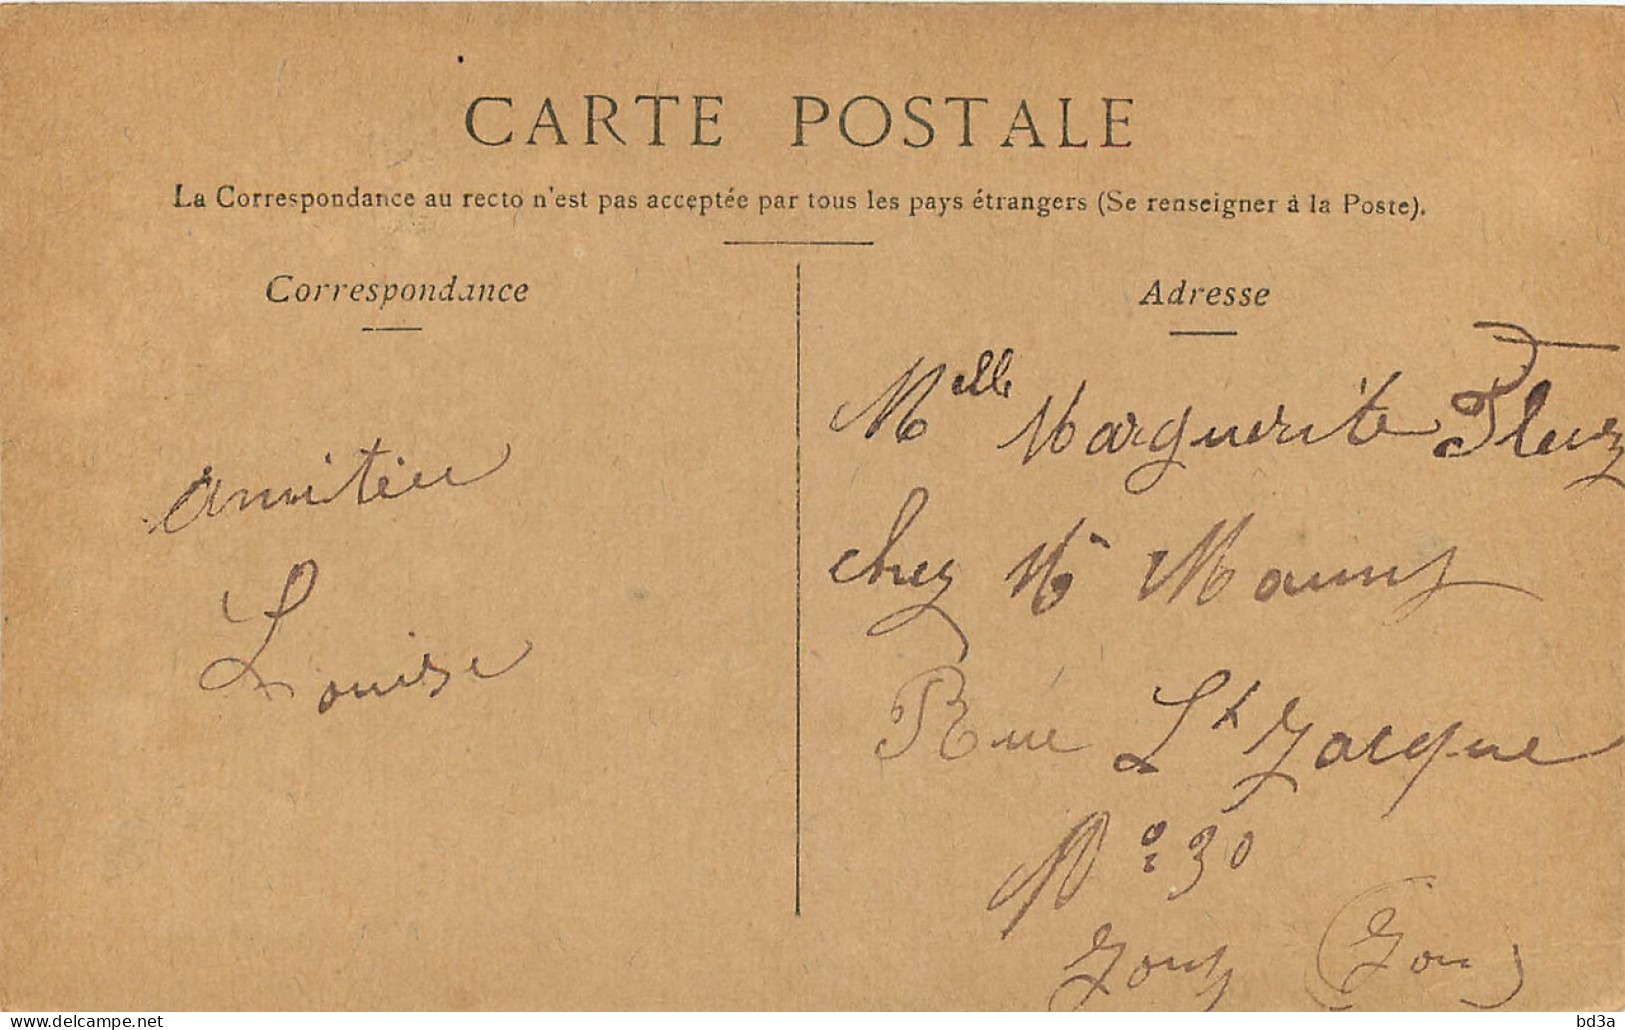 CARTE POSTALE
La Correspondance au recto n'est pas acceptée par tous les pays étrangers (Se renseigner à la Poste).
Correspondance
Adresse
amitiée
Louise
Melle Marguerite Fleury
chez Mr
Rue St Jacque
No 30
delcampe.net
bd3a